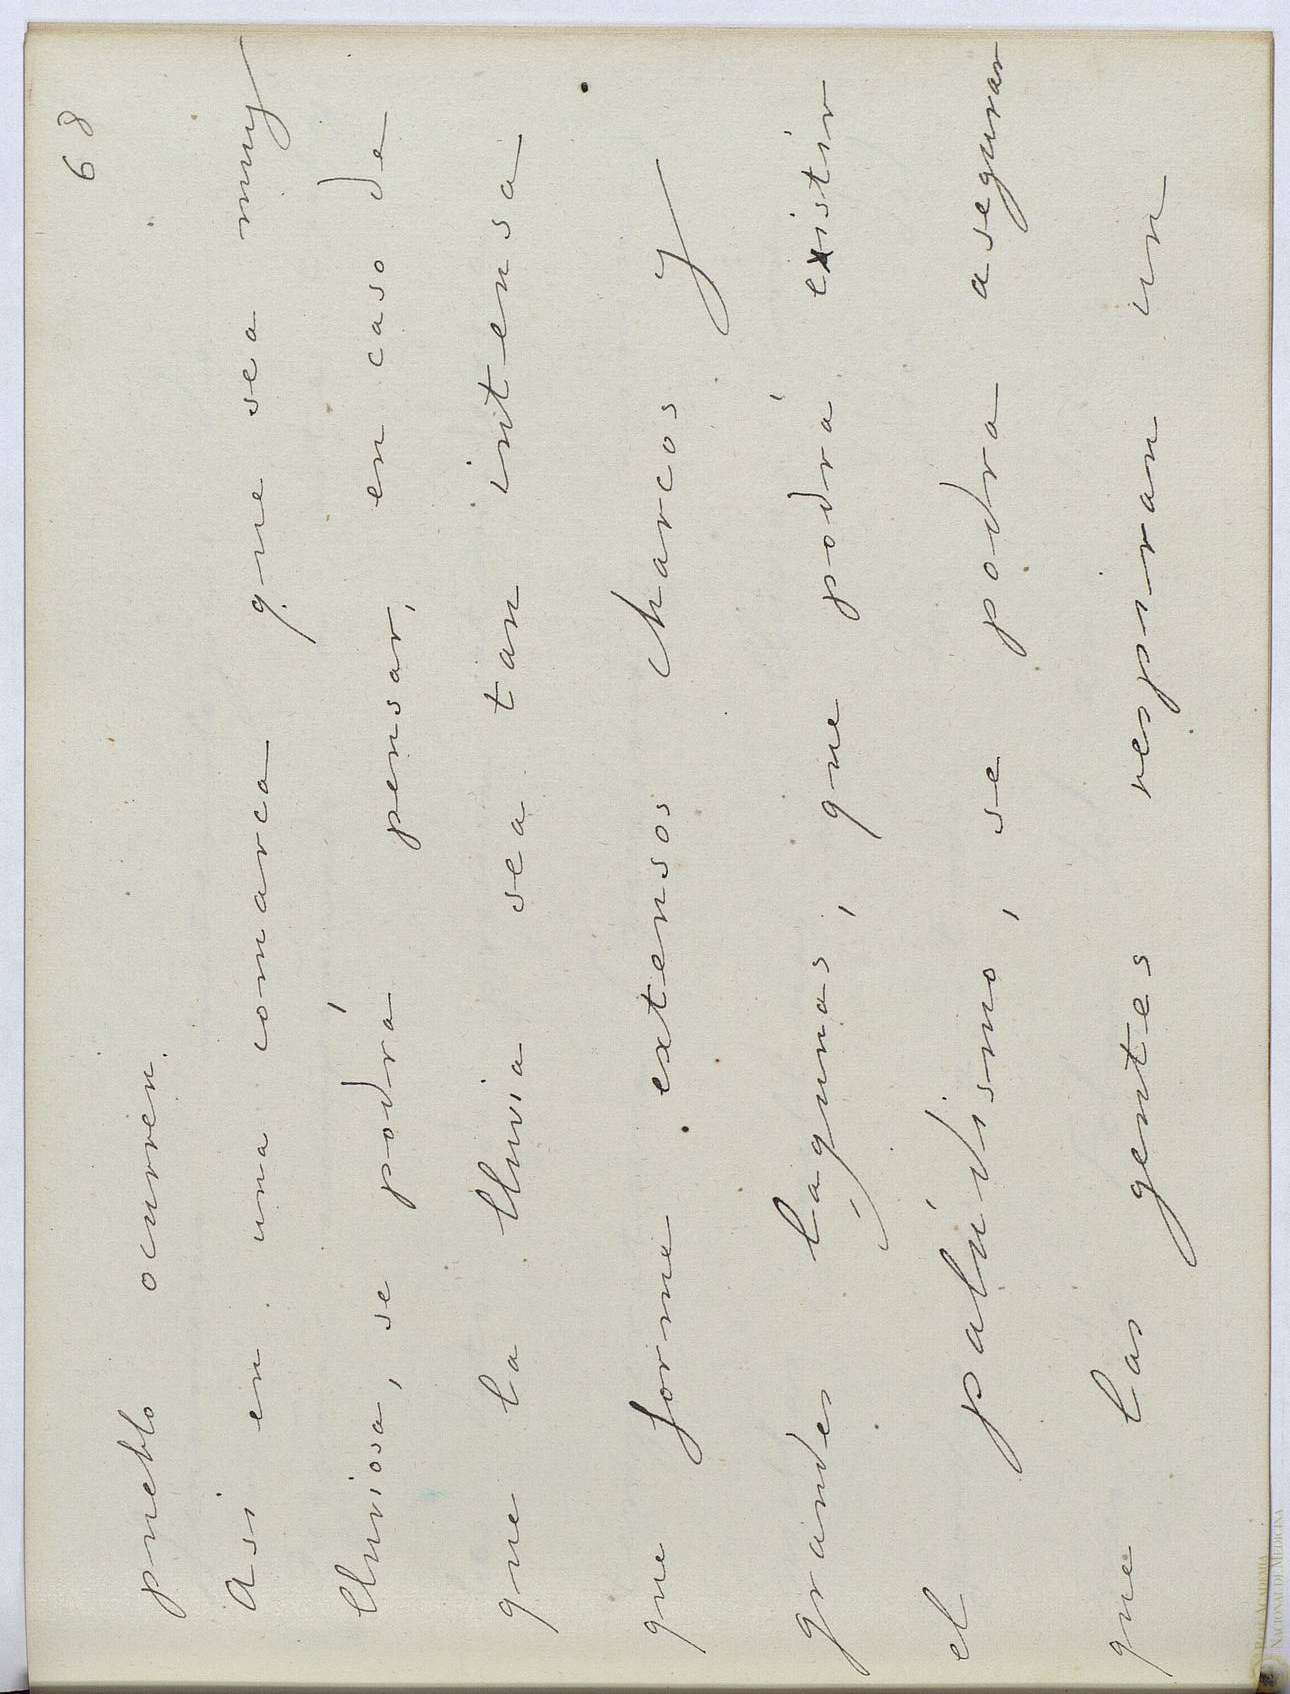 68
pueblo ocurren.
Asi en una comarca que sea muy
lluviosa, se podrá pensar, en caso de
que la lluvia sea tan intensa
que forme extensos charcos y
grandes lagunas, que podrá existir
el palúdismo, se podra asegurar
que las gentes respiran un
REAL ACADEMIA
NACIONAL DE MEDICINA